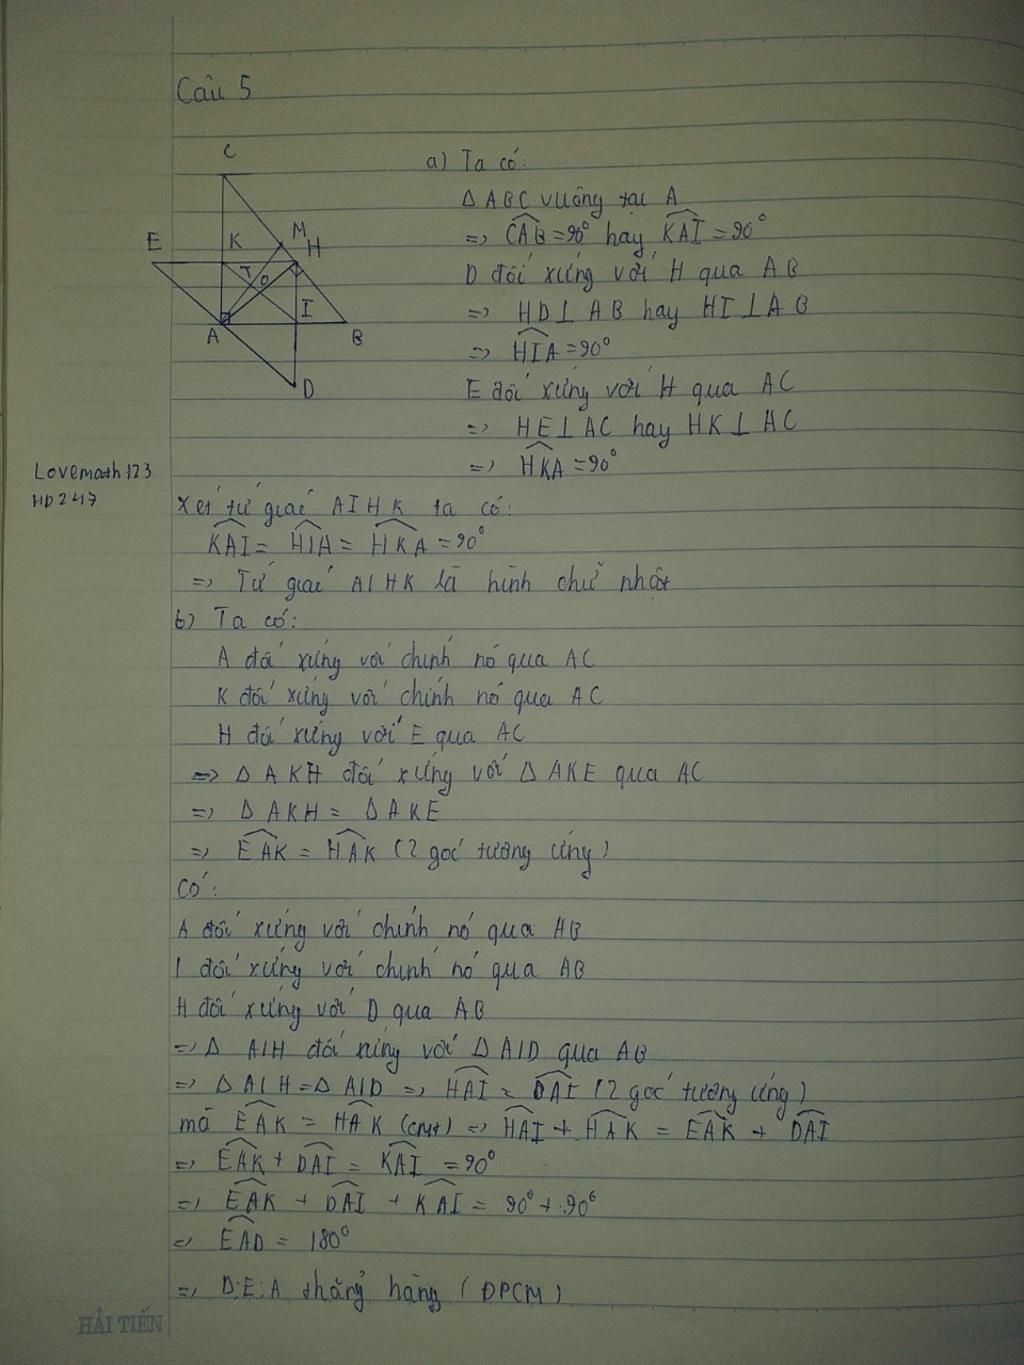 Câu 5
C
a) Ta có:
Δ ABC vuông tại A
E K M H
=> CAB = 90° hay KAI = 90°
T O
D đối xứng với H qua AB
A I B
=> HD ⊥ AB hay HI ⊥ AB
=> HIA = 90°
D
E đối xứng với H qua AC
=> HE ⊥ AC hay HK ⊥ AC
Lovemath123
=> HKA = 90°
HD247
Xét tứ giác AIHK ta có:
KAI = HIA = HKA = 90°
=> Tứ giác AIHK là hình chữ nhật
b) Ta có:
A đối xứng với chính nó qua AC
K đối xứng với chính nó qua AC
H đối xứng với E qua AC
=> Δ AKH đối xứng với Δ AKE qua AC
=> Δ AKH = Δ AKE
=> EAK = HAK (2 góc tương ứng)
Có:
A đối xứng với chính nó qua AB
I đối xứng với chính nó qua AB
H đối xứng với D qua AB
=> Δ AIH đối xứng với Δ AID qua AB
=> Δ AIH = Δ AID => HAI = DAI (2 góc tương ứng)
mà EAK = HAK (cmt) => HAI + HAK = EAK + DAI
=> EAK + DAI = KAI = 90°
=> EAK + DAI + KAI = 90° + 90°
=> EAD = 180°
=> D; E; A thẳng hàng (ĐPCM)
HẢI TIẾN